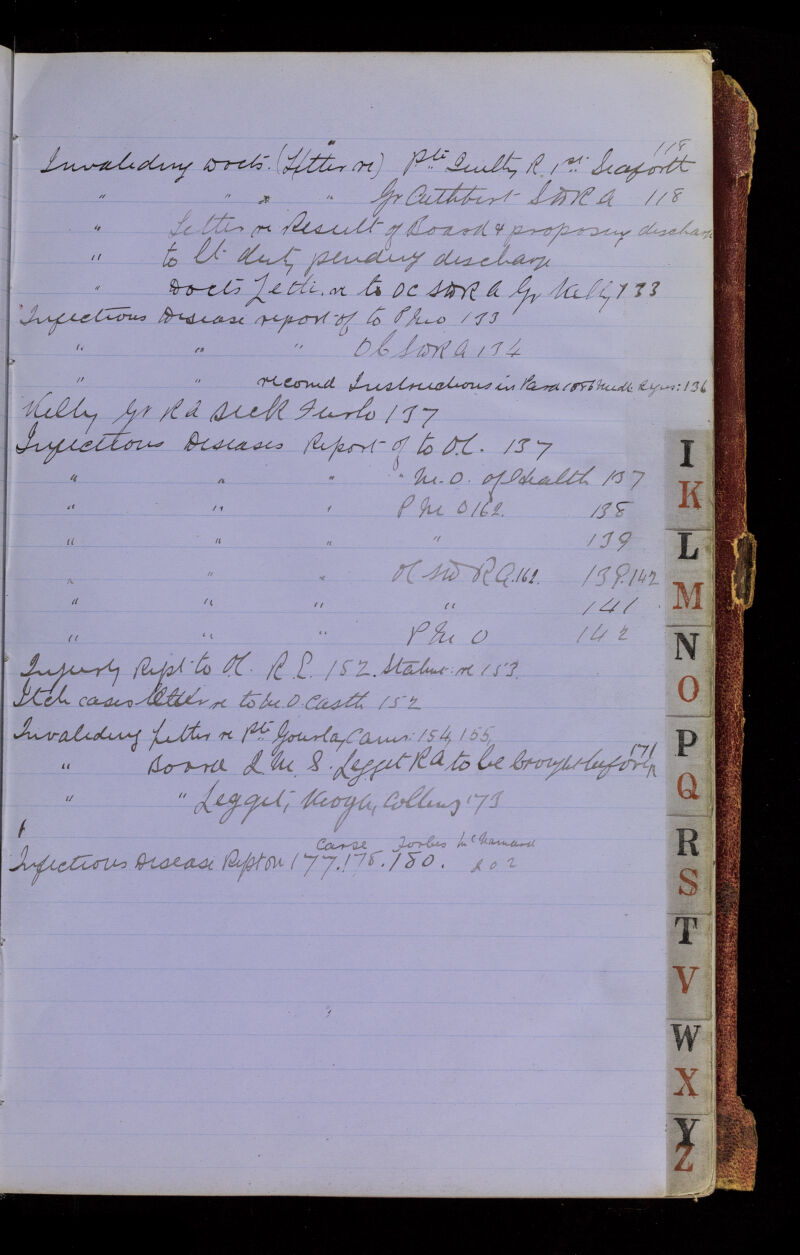 118
Invaliding Docts. (Letter re) Pte Quilty R. 1st Seaforth
" " " Gr Cuthbert SDRA 118
" Letter re Result of Board & proposing discharge
" to Lt duty pending discharge
" Docts Lette. re to OC SDRA Gr Kelly 133
Infectious Disease report of to PMO 133
" " " OC SDRA 134
" " record Instructions in Para 1086 Medl Regns: 136
Kelly Gr RA Sick Furlo 137
Infectious Diseases Report of to O.C. 137
" " " " M.O. of Health 137
" " " PMO 162. 138
" " " " 139
" " " OC SD RA. 162. 139.142
" " " " 141
" " " PMO 142
Injury Rept to O.C. R.E. 152. re 153.
Itch cases letter re to M.O. Castle 152
Invaliding Letter re Pte Gourlay Cams: 154, 155,
171
" Board I M S. Legget RA to be brought before
" " Legget, Keogh, Collins 173
Carse Forbes McNamara
Infectious Disease Rept on 177. 178. 180. 202
I
K
L
M
N
O
P
Q
R
S
T
V
W
X
Y
Z